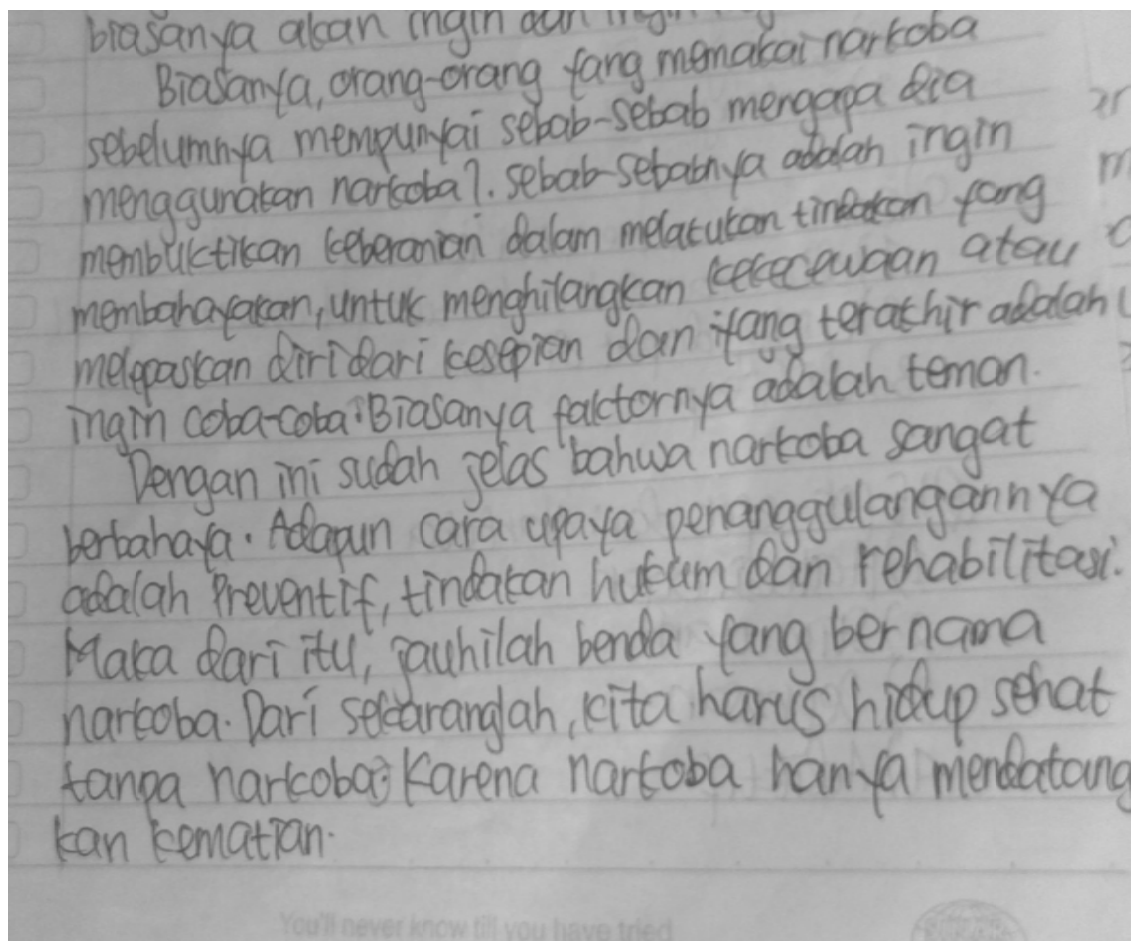 biasanya akan ingin dan
Biasanya, orang-orang yang memakai narkoba
sebelumnya mempunyai sebab-sebab mengapa dia
menggunakan narkoba?. sebab-sebabnya adalah ingin
membuktikan keberanian dalam melakukan tindakan yang
membahayakan, untuk menghilangkan kekecewaan atau
melepaskan diri dari kesepian dan yang terakhir adalah
ingin coba-coba. Biasanya faktornya adalah teman.
Dengan ini sudah jelas bahwa narkoba sangat
berbahaya. Adapun cara upaya penanggulangannya
adalah Preventif, tindakan hukum dan rehabilitasi.
Maka dari itu, jauhilah benda yang bernama
narkoba. Dari sekaranglah, kita harus hidup sehat
tanpa narkoba; Karena narkoba hanya mendatang
kan kematian.
You'll never know till you have tried